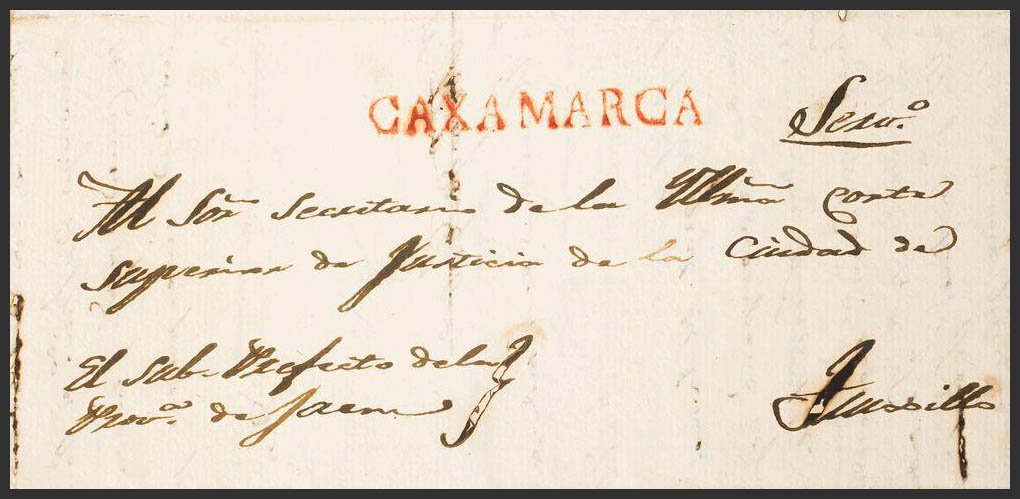 CAXAMARCA
Servº.
Al Sõr. Secretario de la Yllmã Corte
Superior de Justicia de la Ciudad de
Truxillo
El Sub-Prefecto de la
Provª. de Jaen